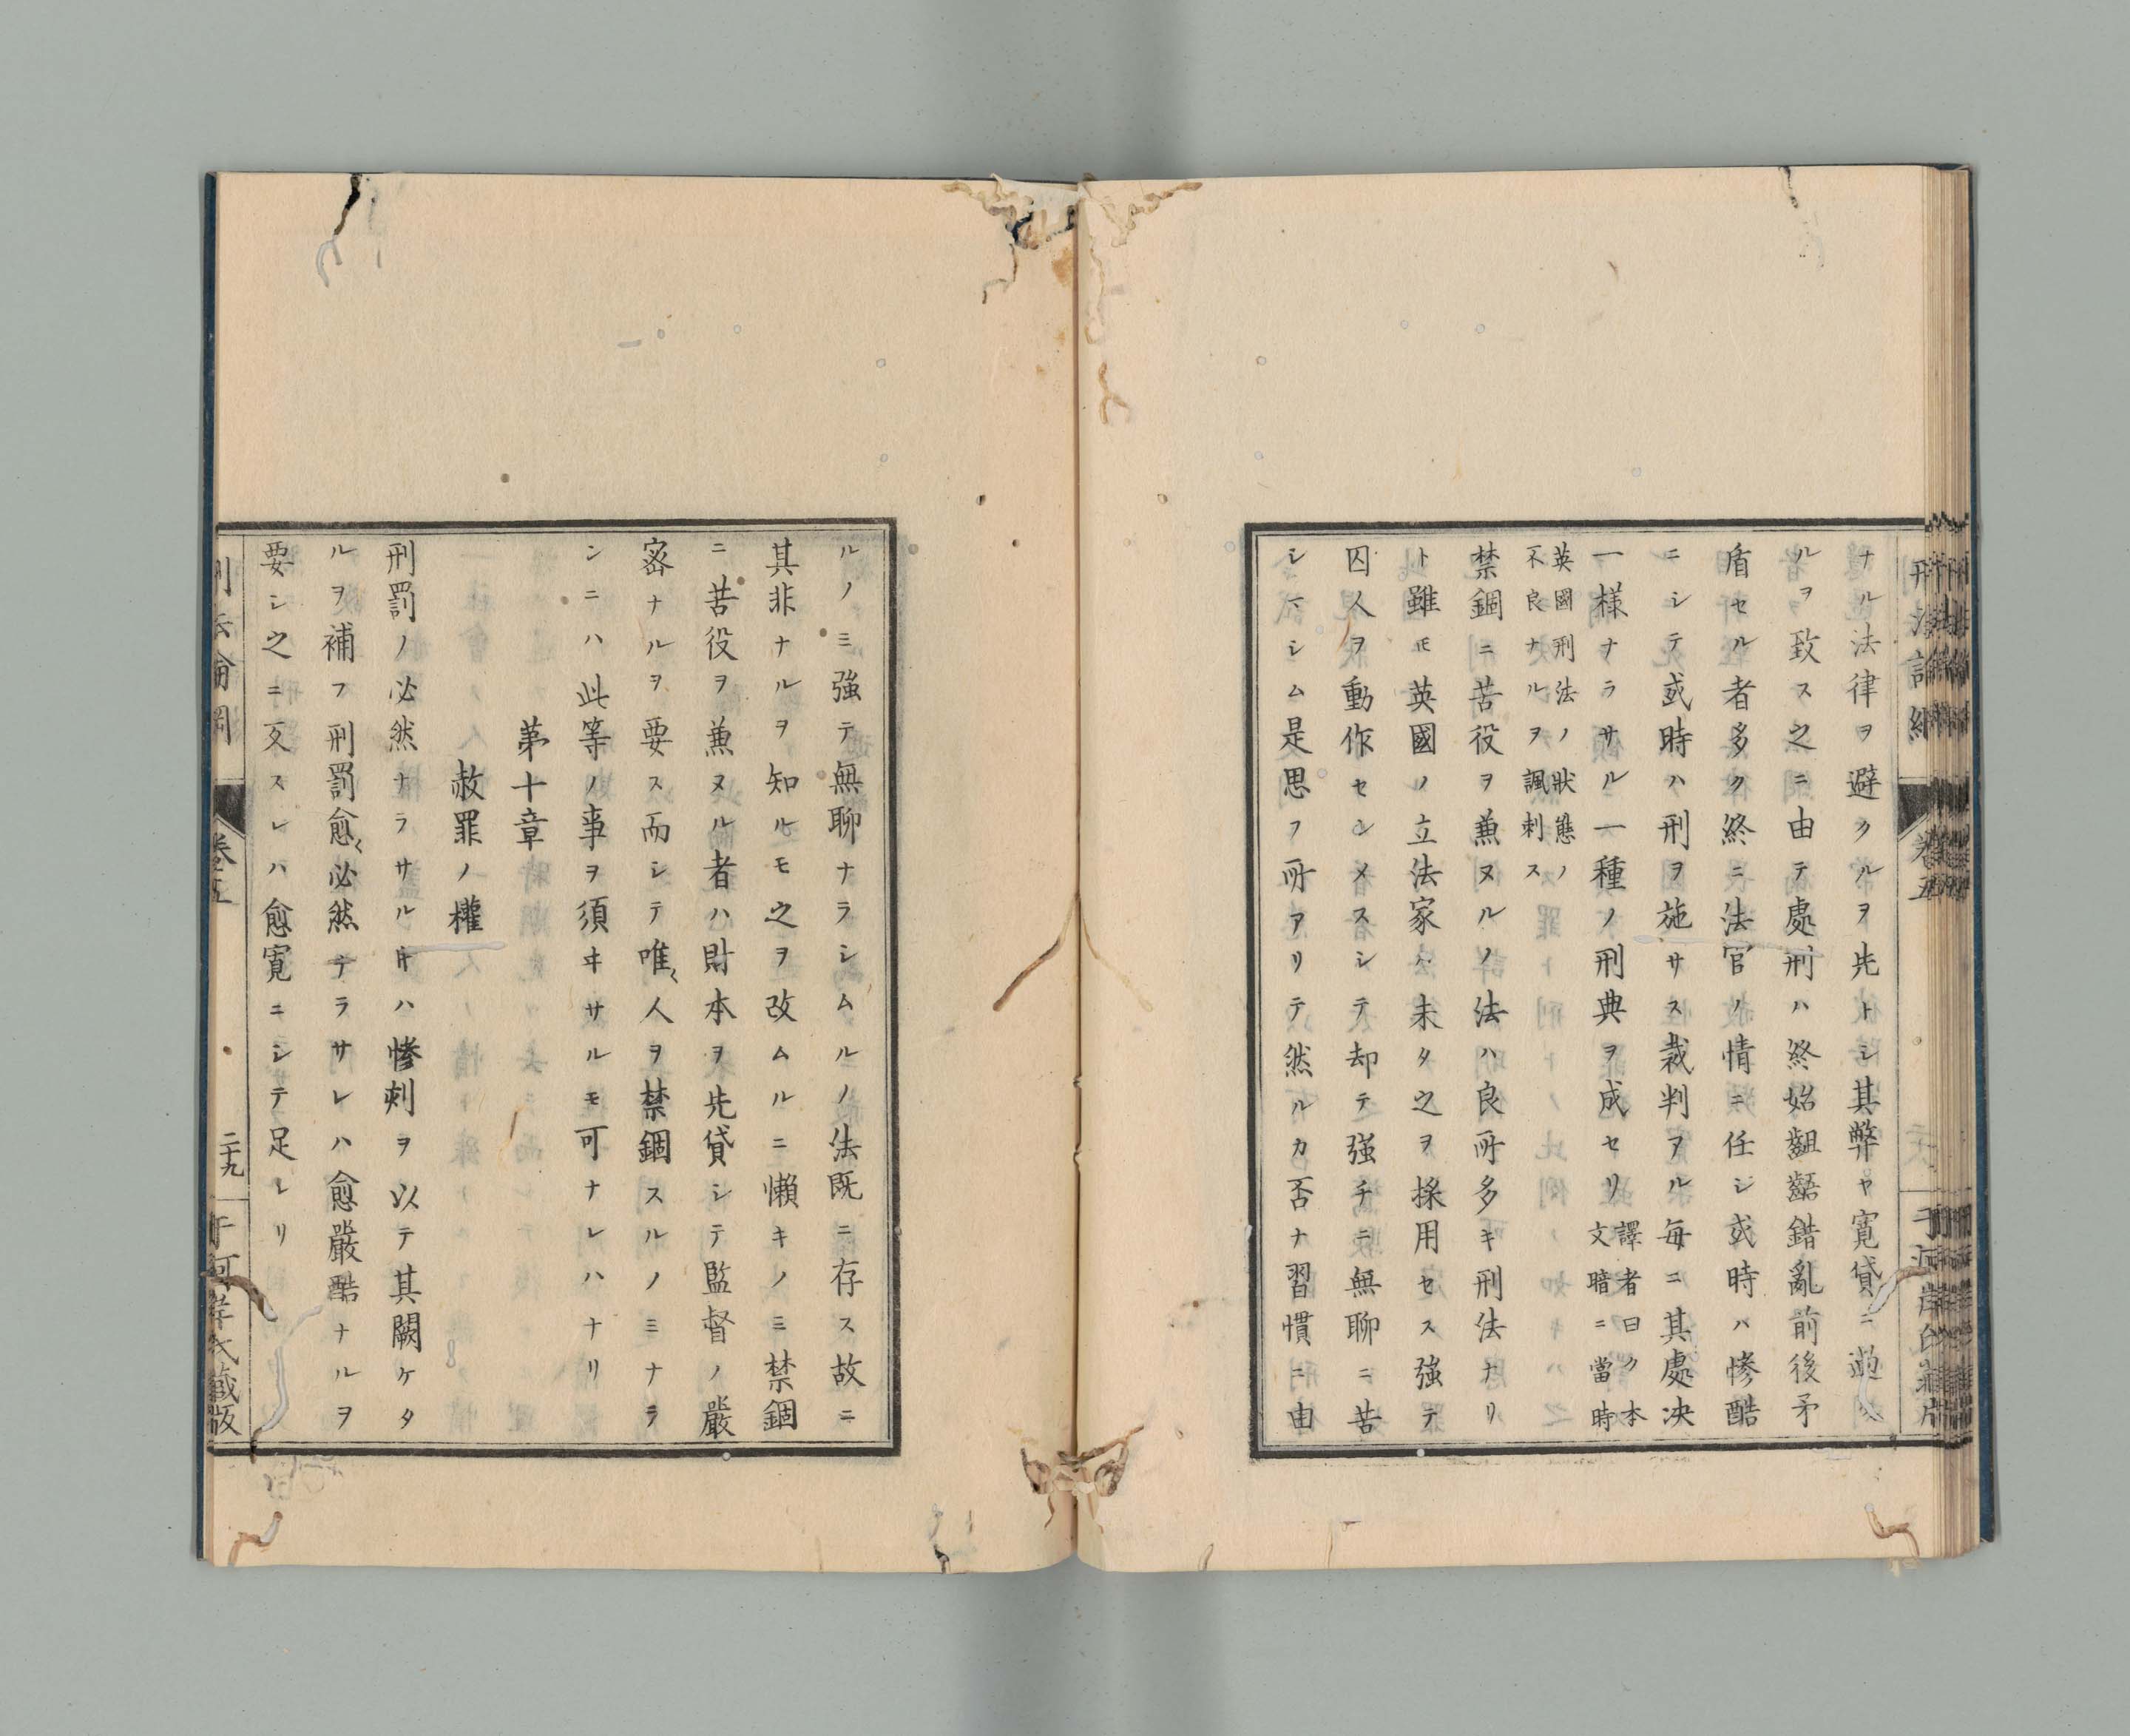 ナル法律ヲ避クルヲ先トシ其弊ヤ寛貸ニ過
ルヲ致ス之ニ由テ處刑ハ終始齟齬錯亂前後矛
盾セル者多ク終ニ法官ノ情ニ任シ或時ハ慘酷
ニシテ或時ハ刑ヲ施サス裁判アル毎ニ其處决
一様ナラサル一種ノ刑典ヲ成セリ譯者曰ク本文暗ニ當時
英國刑法ノ狀態ノ不良ナルヲ諷刺ス
禁錮ニ苦役ヲ兼ヌルノ法ハ良所多キ刑法ナリ
ト雖𪜈英國ノ立法家ハ未タ之ヲ採用セス強テ
囚人ヲ動作セシメスシテ却テ强チニ無聊ニ苦
シマシム是思フ所アリテ然ルカ否ナ習慣ニ由
刑法論綱
卷五
ルノミ強テ無聊ナラシムルノ法既ニ存ス故ニ
其非ナルヲ知ルモ之ヲ改ムルニ懶キノミ禁錮
ニ苦役ヲ兼ヌル者ハ財本ヲ先貸シテ監督ノ嚴
密ナルヲ要ス而シテ唯〻人ヲ禁錮スルノミナラ
ンニハ此等ノ事ヲ須ヰサルモ可ナレハナリ
第十章
赦罪ノ權
刑罰ノ必然ナラサル𪜈ハ慘刻ヲ以テ其闕ケタ
ルヲ補フ刑罰愈〻必然ナラサレハ愈嚴酷ナルヲ
要シ之ニ反スレハ愈寛ニシテ足レリ
刑法論綱
卷五
二十九
于河岸氏藏版